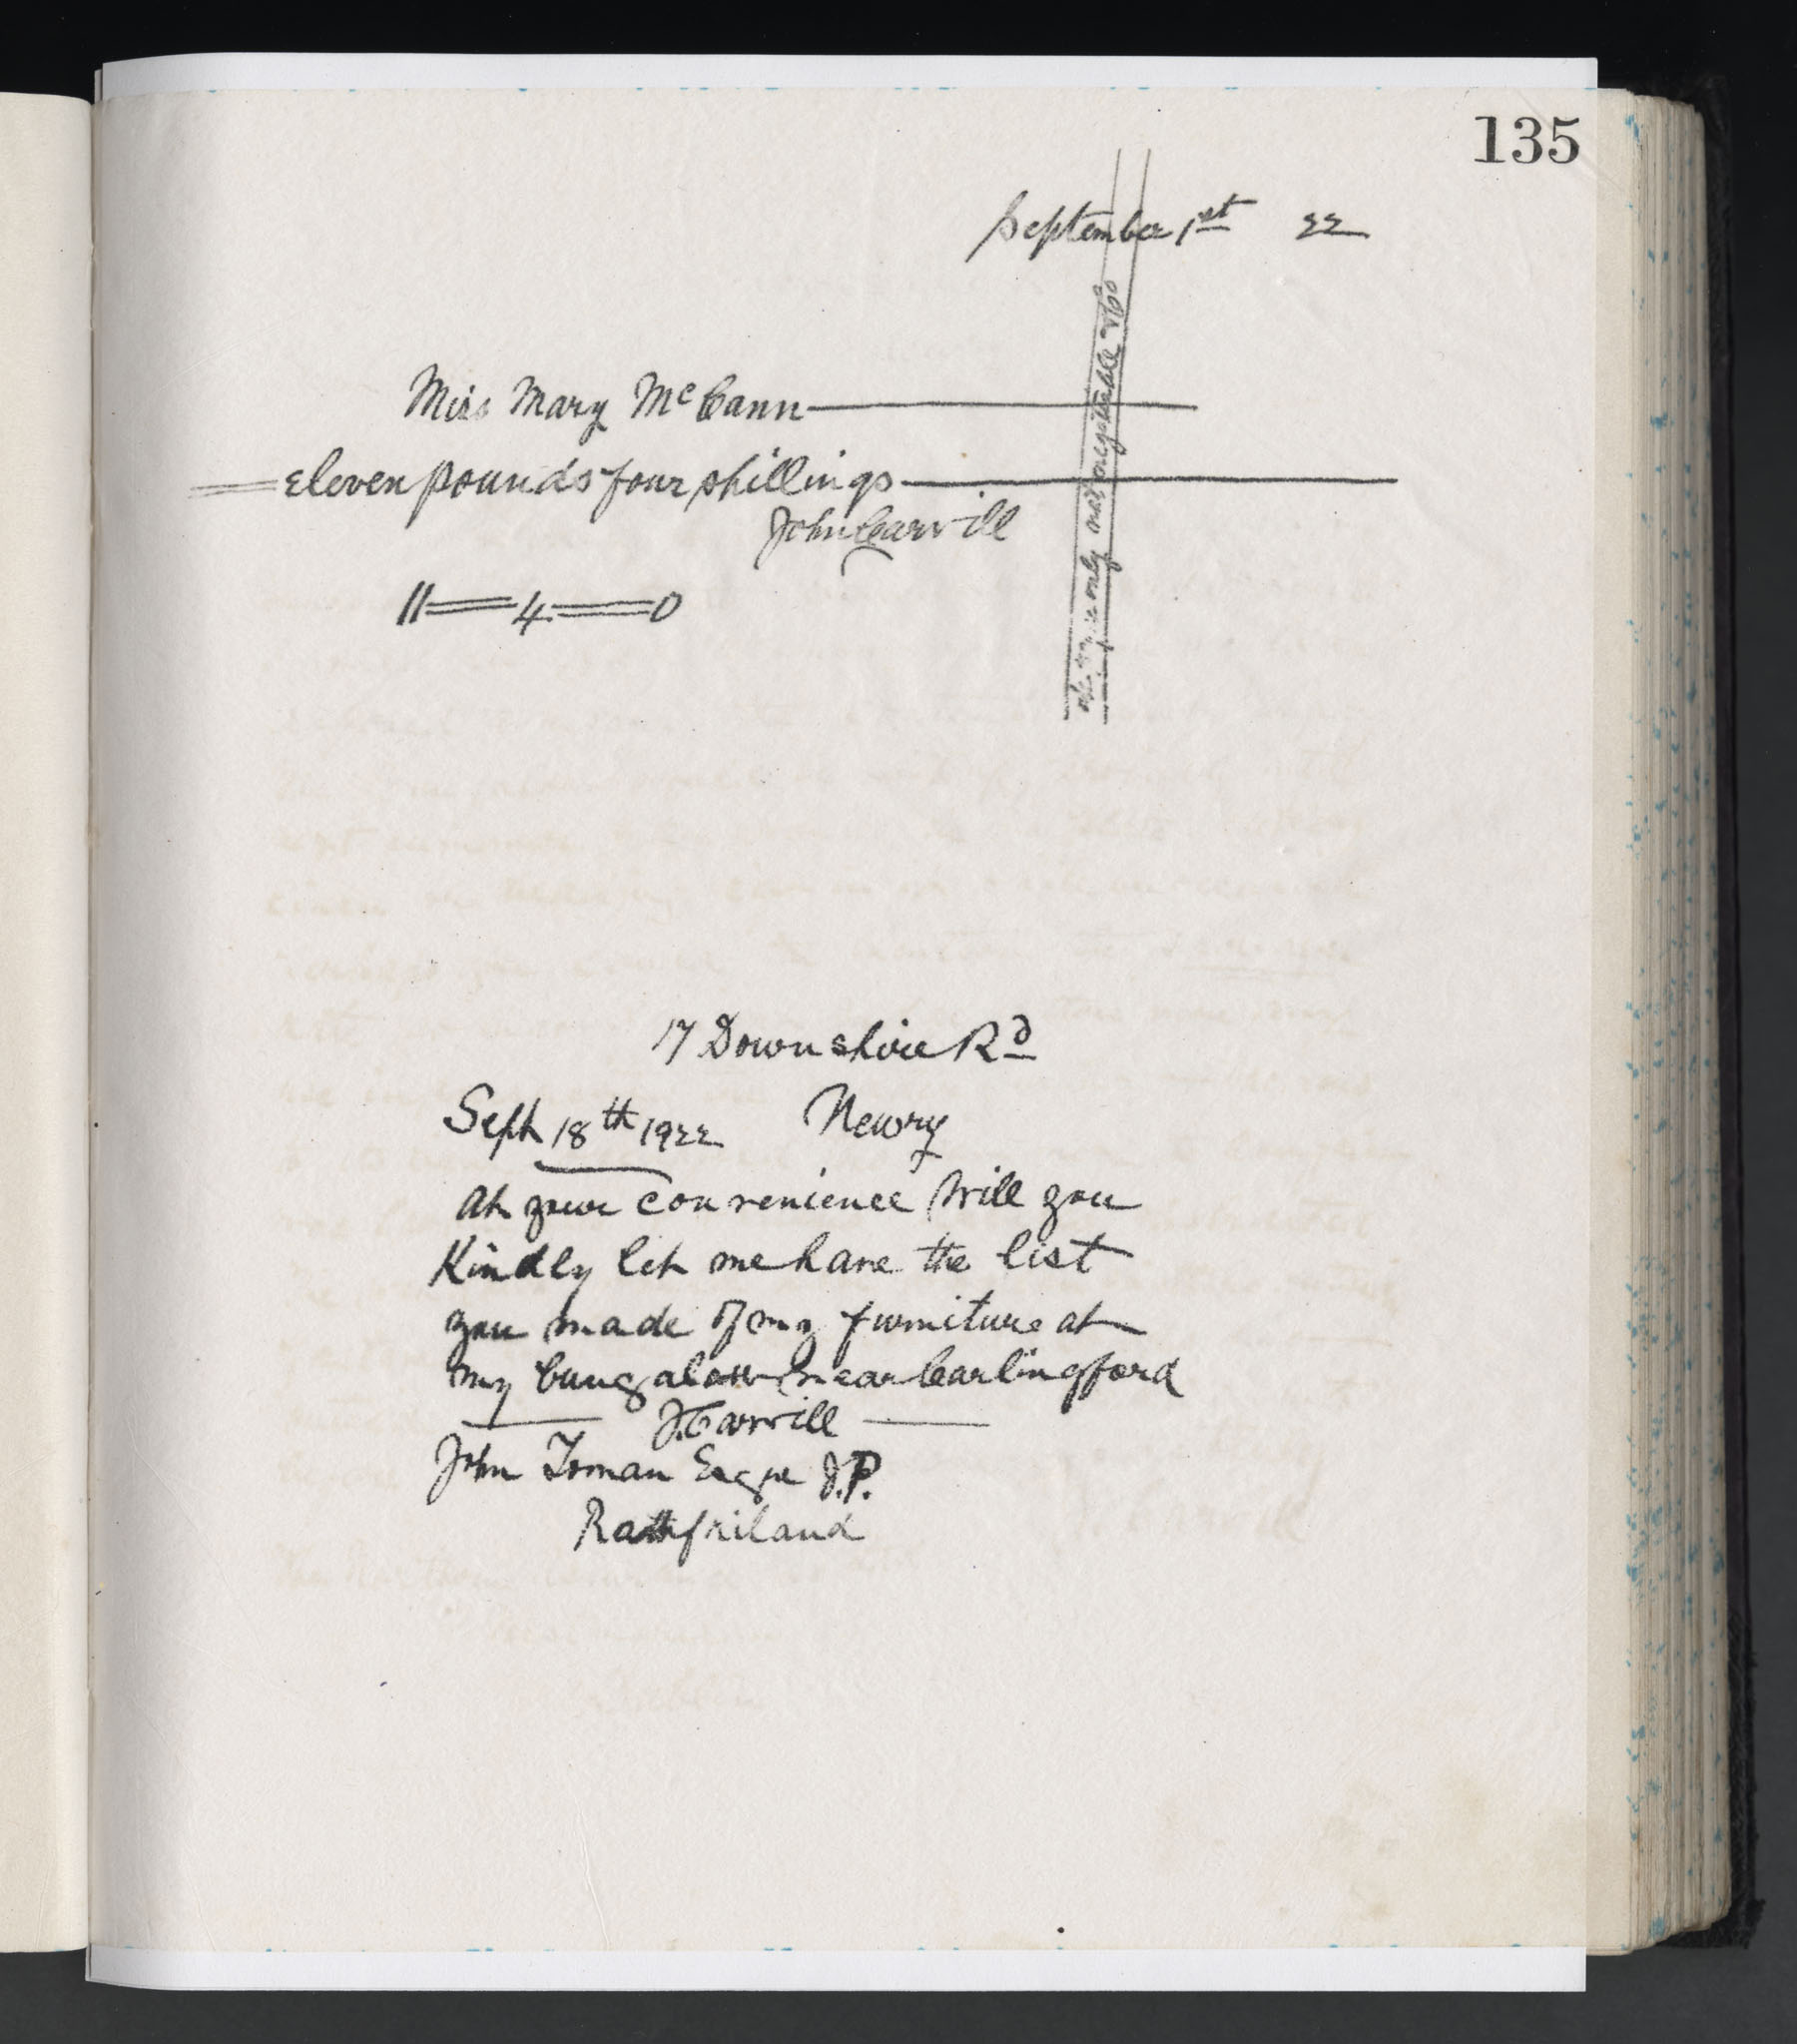 135
September 1st 22
Miss Mary McCann
eleven pounds four shillings
John Carvill
11 = 4 = 0
only not negotiable &Co
17 Downshire Rd
Sept 18th 1922 Newry
at your convenience will you
Kindly let me have the list
you made of my furniture at
my bungalow near Carlingford
J. Carvill
John Toman Esqre J.P.
Rathfriland